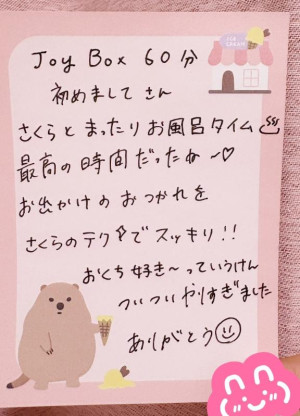 ICE CREAM
Joy Box 60分
初めまして さん
さくらと まったり お風呂タイム♨
最高の時間だったね〜♡
お出かけの おつかれを
さくらのテクでスッキリ!!
おくち好き〜っていうけん
ついついやりすぎました
ありがとう☺